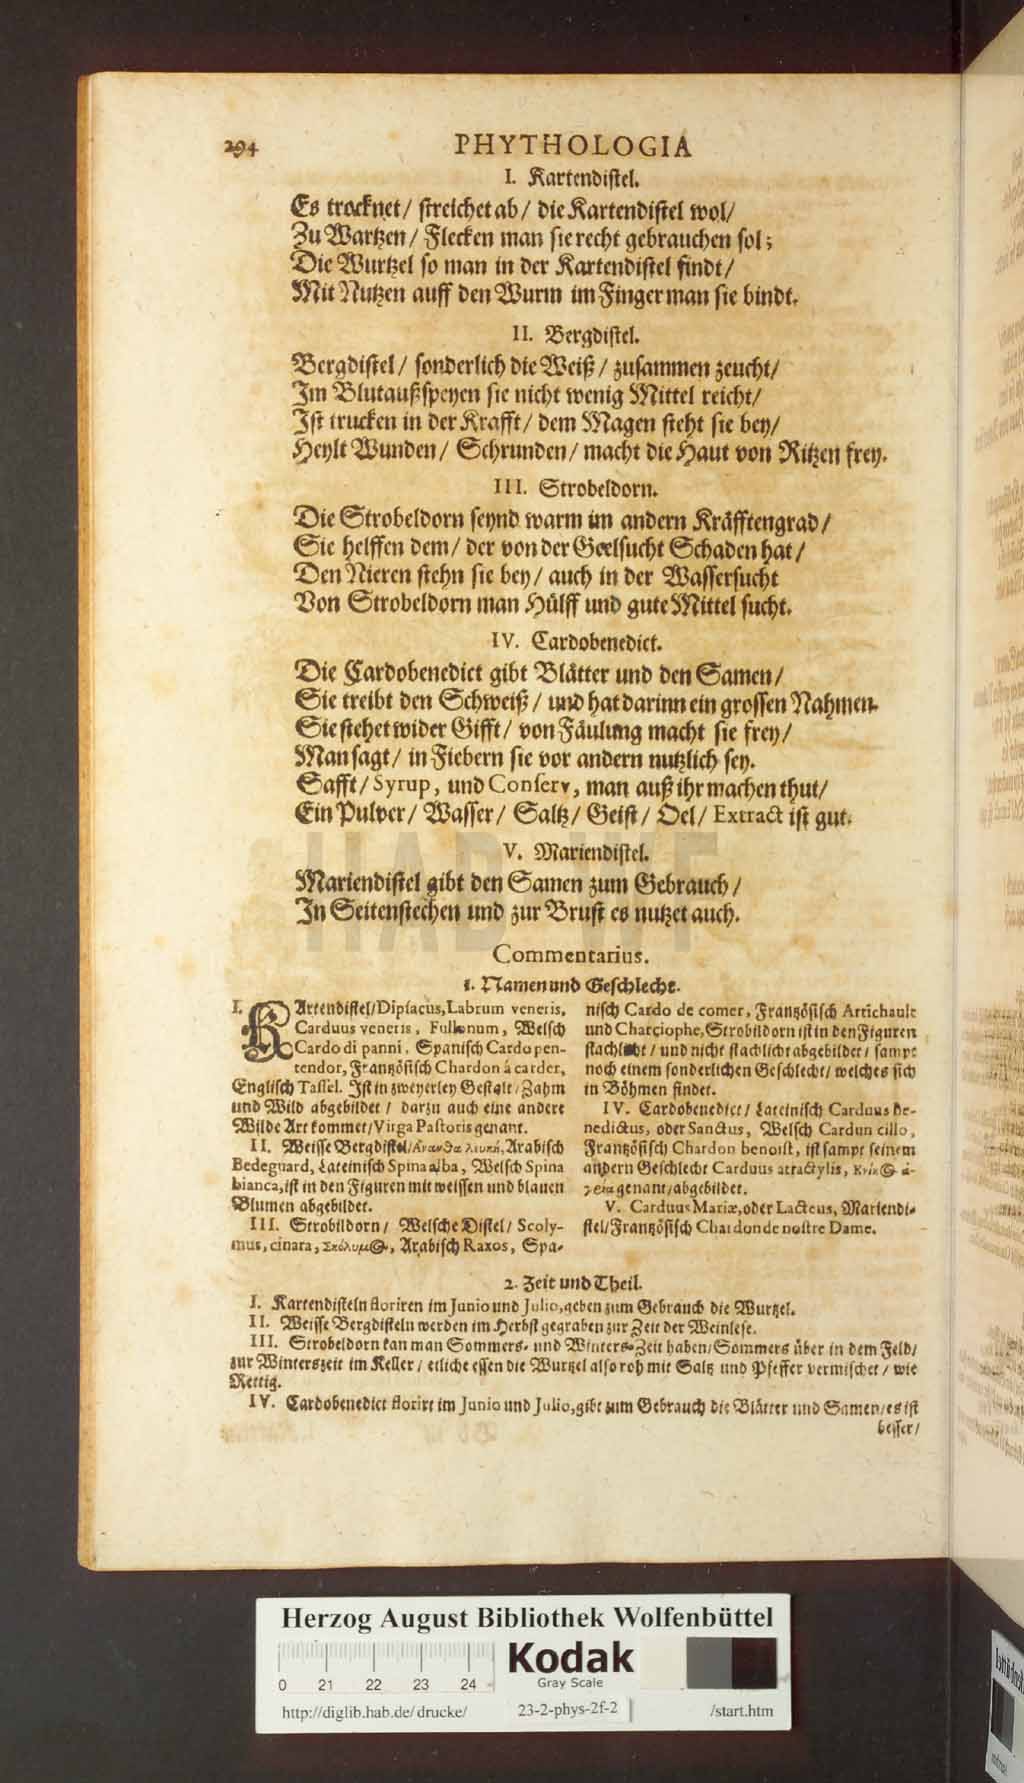 294 PHYTHOLOGIA
I. Kartendistel.
Es trocknet/ streichet ab/ die Kartendistel wol/
Zu Wartzen/ Flecken man sie recht gebrauchen sol;
Die Wurtzel so man in der Kartendistel findt/
Mit Nutzen auff den Wurm im Finger man sie bindt.
II. Bergdistel.
Bergdistel/ sonderlich die Weiß/ zusammen zeucht/
Im Blutaußspeyen sie nicht wenig Mittel reicht/
Ist trucken in der Krafft/ dem Magen steht sie bey/
Heylt Wunden/ Schrunden/ macht die Haut von Ritzen frey.
III. Strobeldorn.
Die Strobeldorn seynd warm im andern Kräfftengrad/
Sie helffen dem/ der von der Geelsucht Schaden hat/
Den Nieren stehn sie bey/ auch in der Wassersucht
Von Strobeldorn man Hülff und gute Mittel sucht.
IV. Cardobenedict.
Die Cardobenedict gibt Blätter und den Samen/
Sie treibt den Schweiß/ und hat darinn ein grossen Nahmen.
Sie stehet wider Gifft/ von Fäulung macht sie frey/
Man sagt/ in Fiebern sie vor andern nutzlich sey.
Safft/ Syrup, und Conserv, man auß ihr machen thut/
Ein Pulver/ Wasser/ Saltz/ Geist/ Oel/ Extract ist gut.
V. Mariendistel.
Mariendistel gibt den Samen zum Gebrauch/
In Seitenstechen und zur Brust es nutzet auch.
HAB WF
Commentarius.
1. Namen und Geschlecht.
I. KArtendistel/ Dipsacus, Labrum veneris,
Carduus veneris, Fullonum, Welsch
Cardo di panni, Spanisch Cardo pen-
tendor, Frantzösisch Chardon á carder,
Englisch Tassel. Ist in zweyerley Gestalt/ Zahm
und Wild abgebildet/ darzu auch eine andere
Wilde Art kommet/ Virga Pastoris genant.
II. Weisse Bergdistel/ Ἄκανθα λευκὴ, Arabisch
Bedeguard, Lateinisch Spina alba, Welsch Spina
bianca, ist in den Figuren mit weissen und blauen
Blumen abgebildet.
III. Strobildorn/ Welsche Distel/ Scoly-
mus, cinara, Σκόλυμος, Arabisch Raxos, Spa-
nisch Cardo de comer, Frantzösisch Artichault
und Charciophe, Strobildorn ist in den Figuren
stachlicht/ und nicht stachlicht abgebildet/ sampt
noch einem sonderlichen Geschlecht/ welches sich
in Böhmen findet.
IV. Cardobenedict/ Lateinisch Carduus be-
nedictus, oder Sanctus, Welsch Cardun cillo,
Frantzösisch Chardon benoist, ist sampt seinem
andern Geschlecht Carduus atractylis, Κνίκος ἀ-
γρία genant/ abgebildet.
V. Carduus Mariæ, oder Lacteus, Mariendi-
stel/ Frantzösisch Chardon de nostre Dame.
2. Zeit und Theil.
I. Kartendisteln floriren im Junio und Julio, geben zum Gebrauch die Wurtzel.
II. Weisse Bergdisteln werden im Herbst gegraben zur Zeit der Weinlese.
III. Strobeldorn kan man Sommers- und Winters-Zeit haben/ Sommers über in dem Feld/
zur Winterszeit im Keller/ etliche essen die Wurtzel also roh mit Saltz und Pfeffer vermischet/ wie
Rettig.
IV. Cardobenedict florirt im Junio und Julio, gibt zum Gebrauch die Blätter und Samen/ es ist
besser/
Herzog August Bibliothek Wolfenbüttel
0 21 22 23 24
Kodak
Gray Scale
http://diglib.hab.de/drucke/ 23-2-phys-2f-2 /start.htm